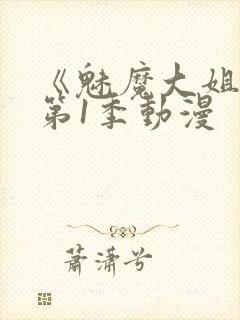 《魅魔大姐
第1季動漫
蕭瀟兮